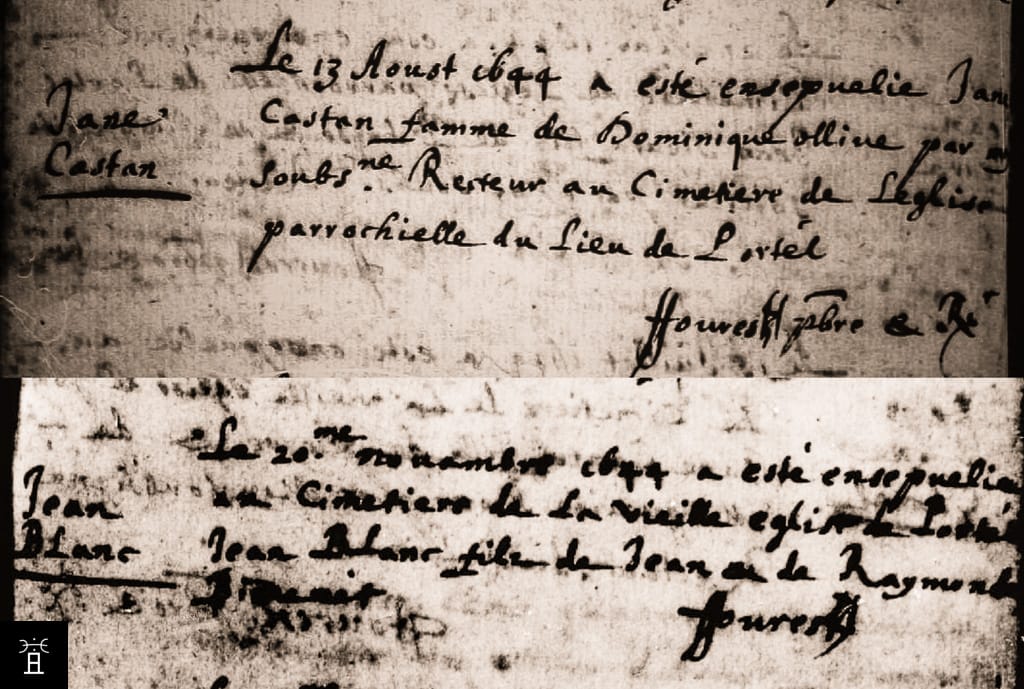 Le 13 Aoust 1644 a esté ensepuelie Jane
Jane
Castan famme de Dominique ollive par m
Castan
soubs.ne Recteur au Cimetiere de Leglise
parrochielle du Lieu de Lortél
ffoures pbre & Rr
Le 20.me nouambre 1644 a esté ensepuelie
Jean
au Cimetiere de La vieille eglise de Lortél
Blanc
Jean Blanc filz de Jean et de Raymond
ffoures